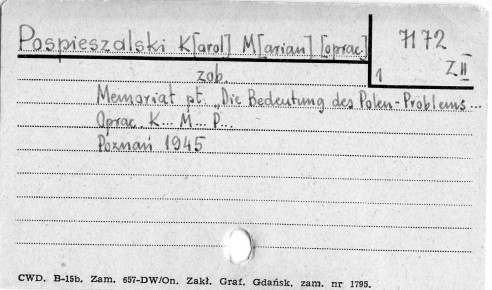 Pospieszalski K[arol] M[arian] [oprac]
7172
1 Z II
zob.
Memoriał pt. „Die Bedeutung des Polen-Problems...
Oprac. K... M... P...
Poznań 1945
CWD. B-15b. Zam. 657-DW/On. Zakł. Graf. Gdańsk, zam. nr 1795.